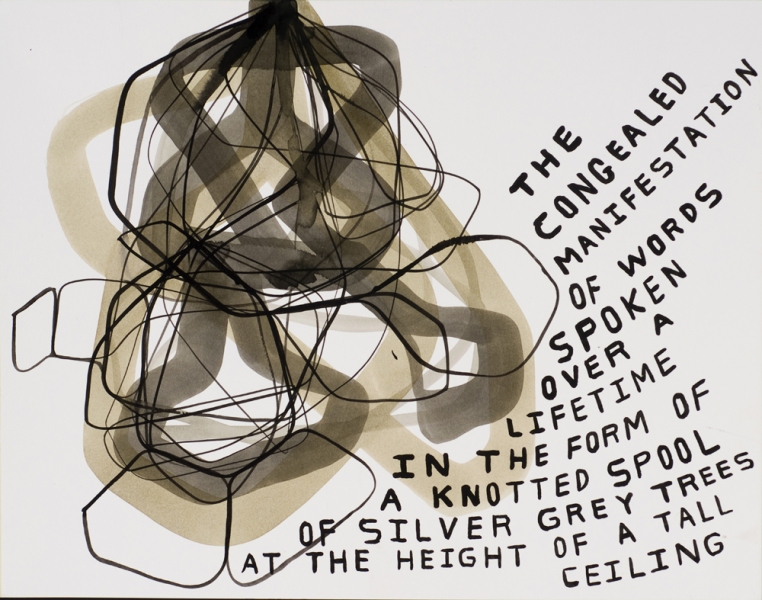 THE
CONGEALED
MANIFESTATION
OF WORDS
SPOKEN
OVER A
LIFETIME
IN THE FORM OF
A KNOTTED SPOOL
OF SILVER GREY TREES
AT THE HEIGHT OF A TALL
CEILING